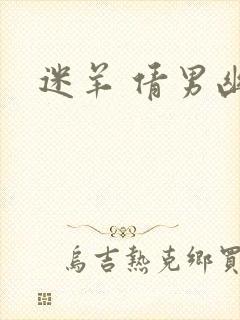 迷羊 倩男幽
烏吉熱克鄉買